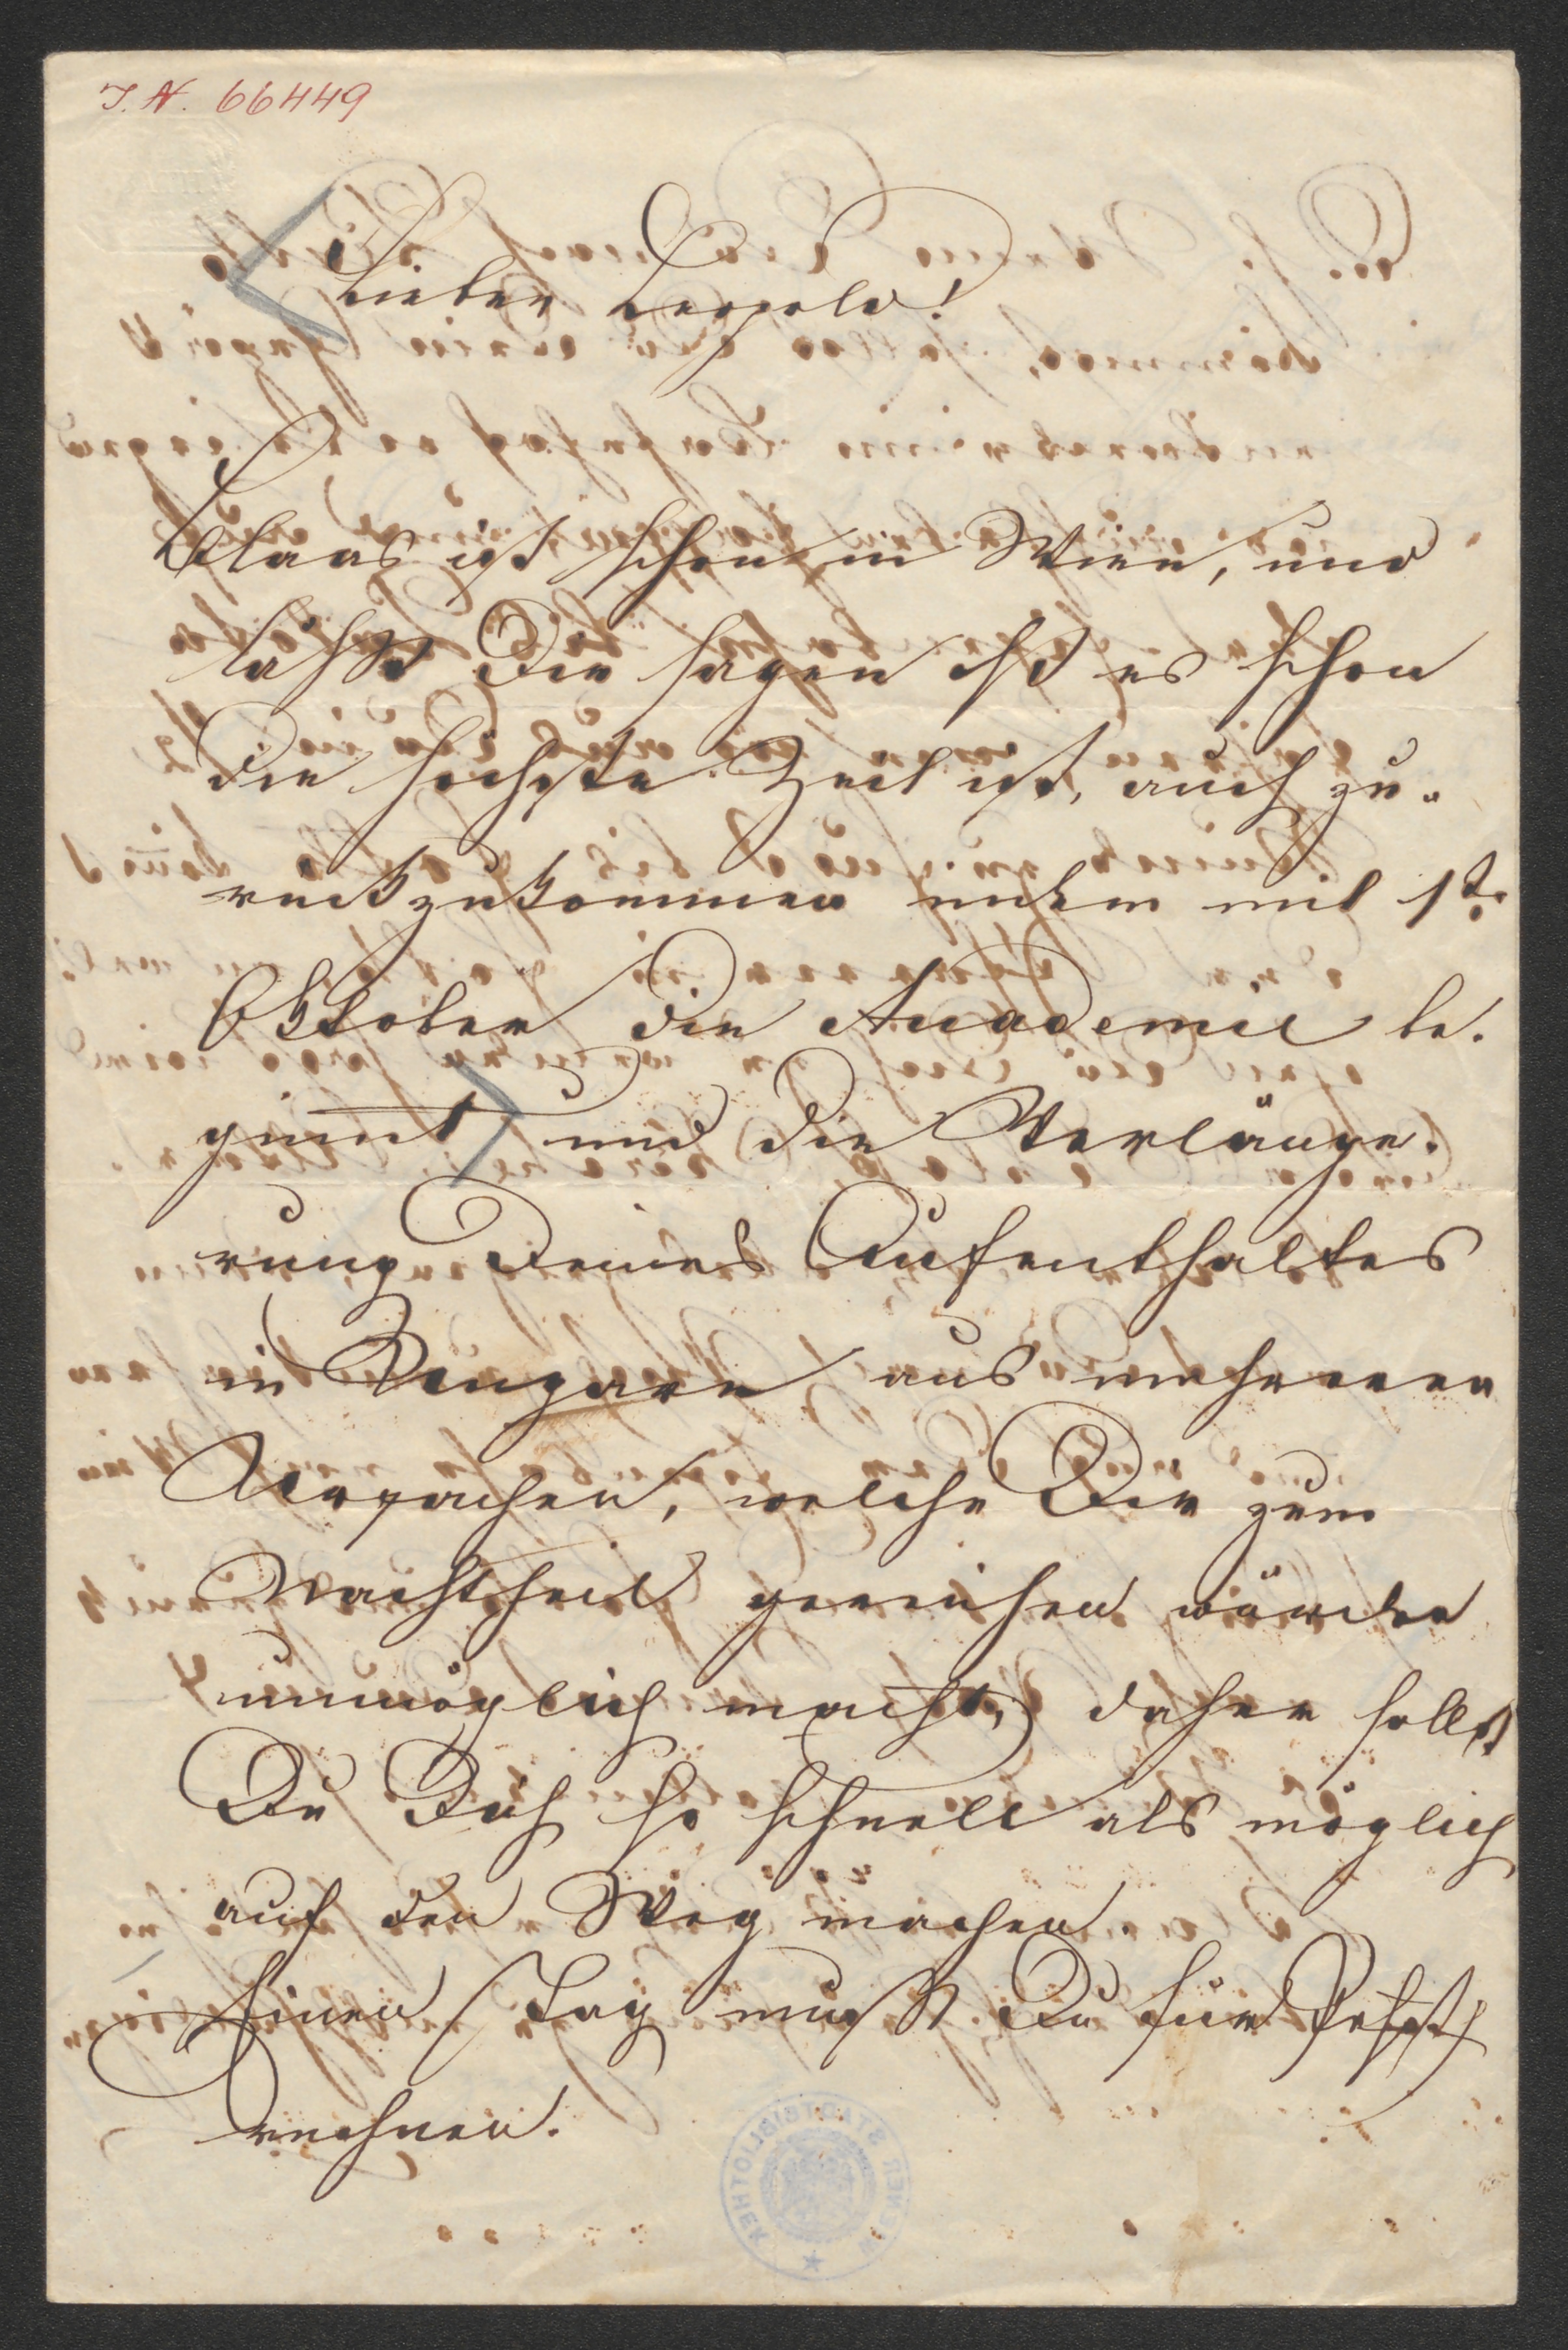 I. N. 66449
Lieber Leopold!
Blaas ist schon in Wien, und
läßt Dir sagen ß es schon
die höchste Zeit ist, auch zu-
rückzukommen indem mit 1ten
Oktober die Academie be-
ginnt und die Verlänge-
rung Deines Aufenthaltes
in Ungarn aus mehreren
Ursachen, welche Dir zum
Nachtheil gereichen würden
unmöglich macht, daher sollst
Du Dich so schnell als möglich
auf den Weg machen.
Einen Tag mußt Du für Pesth
rechnen.
WIENER STADTBIBLIOTHEK